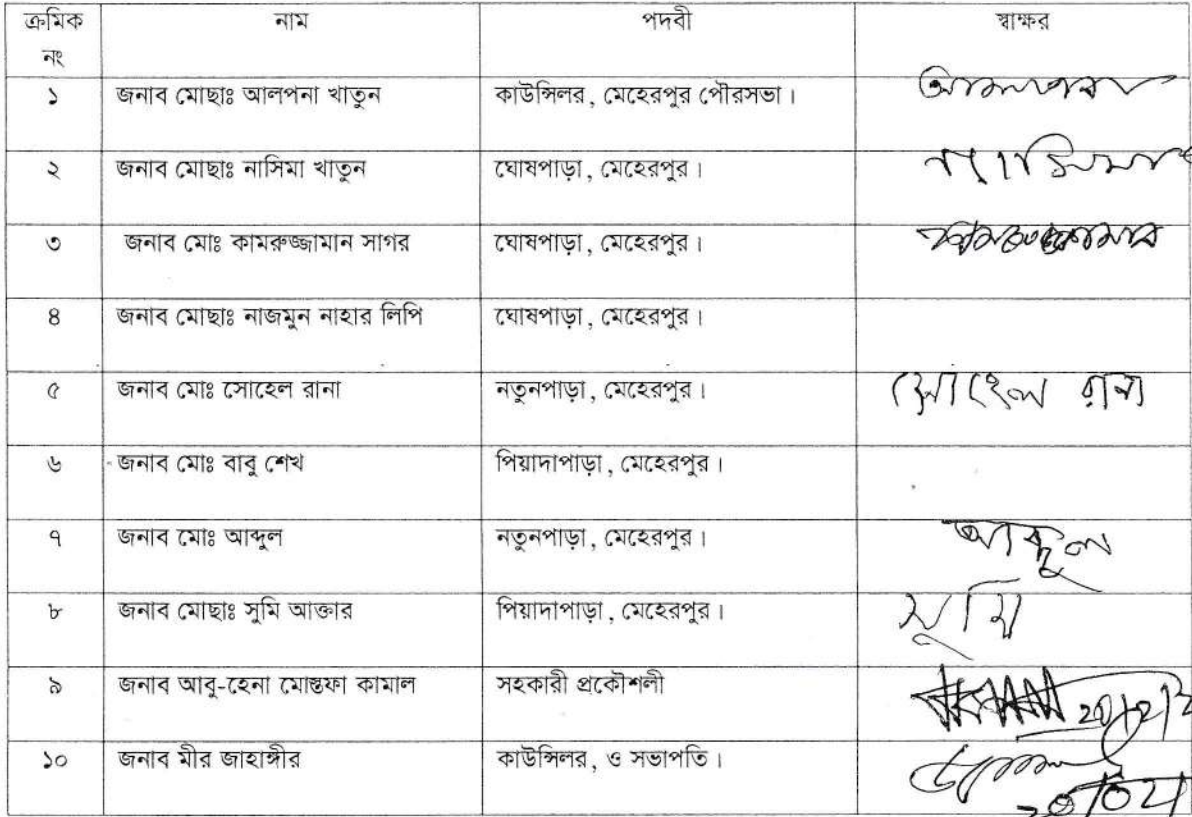 ক্রমিক নং | নাম | পদবী | স্বাক্ষর
১ | জনাব মোছাঃ আলপনা খাতুন | কাউন্সিলর, মেহেরপুর পৌরসভা। | আলপনা
২ | জনাব মোছাঃ নাসিমা খাতুন | ঘোষপাড়া, মেহেরপুর।
৩ | জনাব মোঃ কামরুজ্জামান সাগর | ঘোষপাড়া, মেহেরপুর।
৪ | জনাব মোছাঃ নাজমুন নাহার লিপি | ঘোষপাড়া, মেহেরপুর।
৫ | জনাব মোঃ সোহেল রানা | নতুনপাড়া, মেহেরপুর। | সোহেল রানা
৬ | জনাব মোঃ বাবু শেখ | পিয়াদাপাড়া, মেহেরপুর।
৭ | জনাব মোঃ আব্দুল | নতুনপাড়া, মেহেরপুর। | আব্দুল
৮ | জনাব মোছাঃ সুমি আক্তার | পিয়াদাপাড়া, মেহেরপুর। | সুমি
৯ | জনাব আবু-হেনা মোস্তফা কামাল | সহকারী প্রকৌশলী
১০ | জনাব মীর জাহাঙ্গীর | কাউন্সিলর, ও সভাপতি।